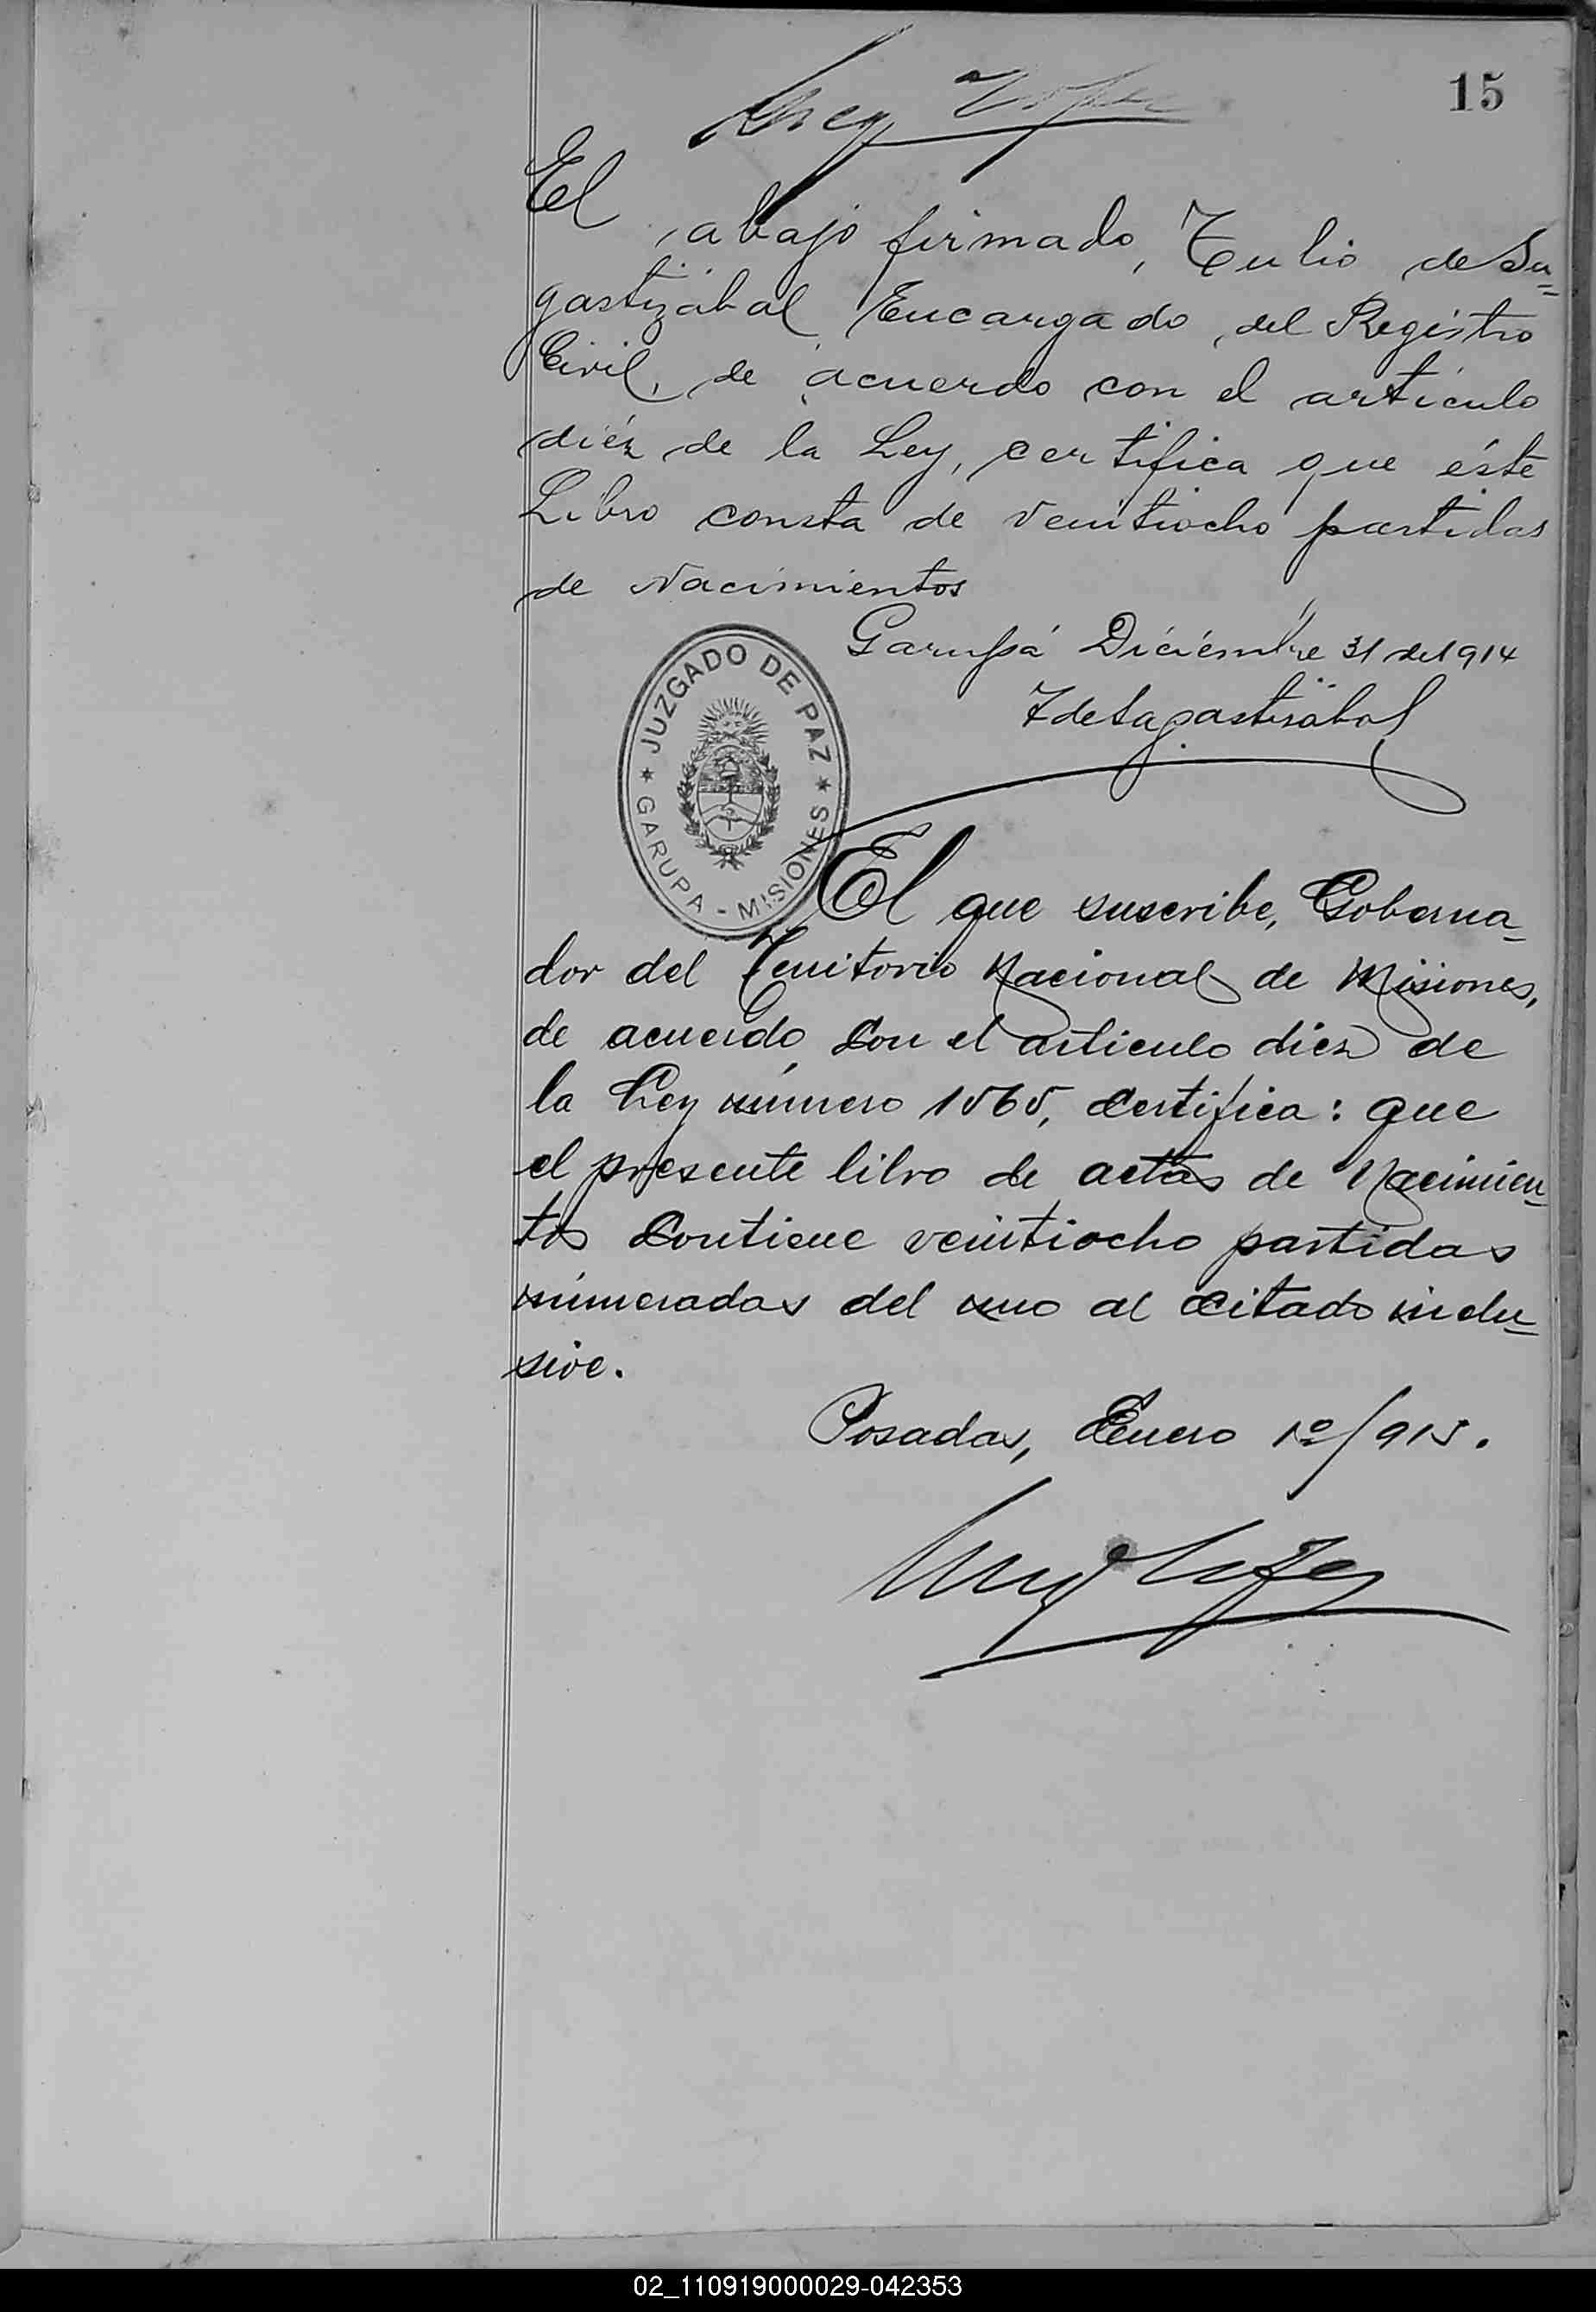 15
El
abajo firmado, Tulio de Sa=
gastizábal Encargado del Registro
Civil, de acuerdo con el artículo
diéz de la Ley, certifica que éste
Libro consta de veintiocho partidas
de Nacimientos
Garupá Diciémbre 31 de 1914
T de Sagastizábal
JUZGADO DE PAZ
GARUPA - MISIONES
El que suscribe, Goberna-
dor del Territorio Nacional de Misiones,
de acuerdo con el articulo diez de
la Ley número 1565, certifica: que
el presente libro de actas de Nacimien-
tos contiene veintiocho partidas
númeradas del uno al citado inclu-
sive.
Posadas, Enero 1º/915.
02_110919000029-042353